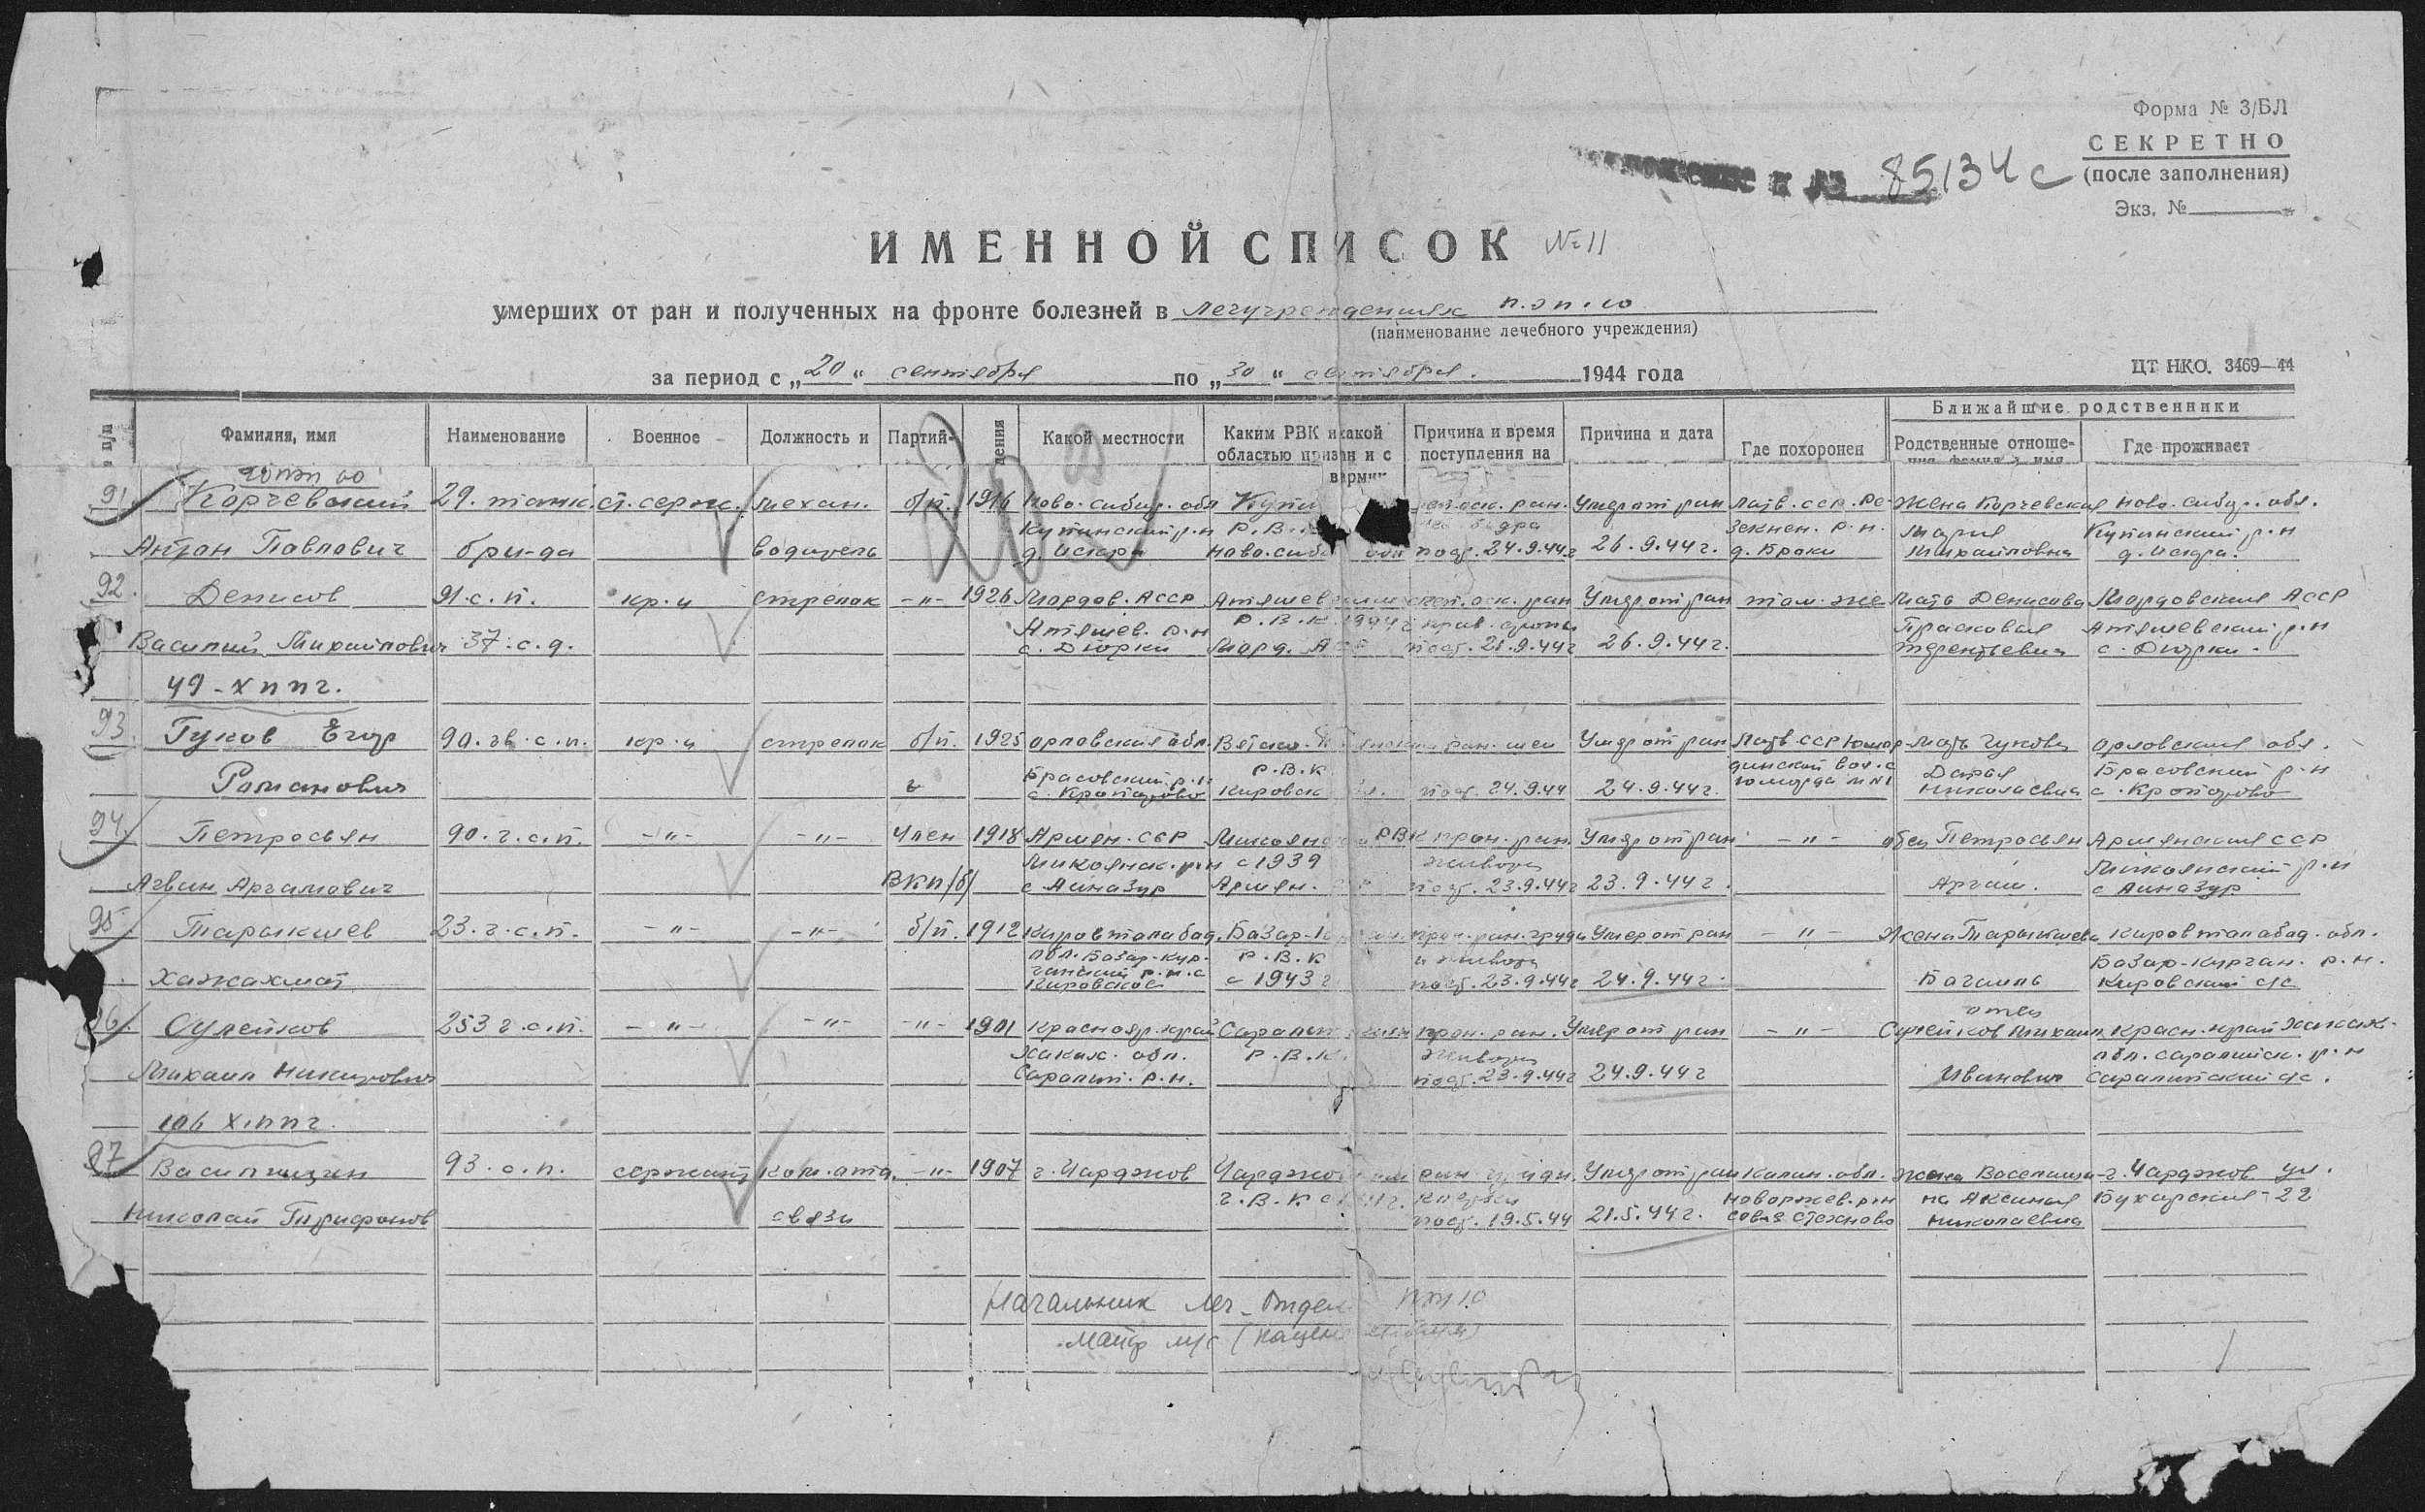 Форма № 3/БЛ
СЕКРЕТНО
(после заполнения)
Экз. №
к № 85134с
ИМЕННОЙ СПИСОК №11
умерших от ран и полученных на фронте болезней в лечучреждениях п.эп.10
(наименование лечебного учреждения)
за период с „20“ сентября по „30“ сентября 1944 года
ЦТ НКО. 3469—44
п/п Фамилия, имя Наименование Военное Должность и Партий- дения Какой местности Каким РВК и какой областью призван и с Причина и время поступления на Причина и дата Где похоронен Ближайшие родственники
Родственные отноше- Где проживает
91 Корчевский 29. танк. ст. серж. механ. б/п. 1916 Ново-сибир. обл Купи оск. ран. Умер от ран Латв. ССР. Ре- Жена Корчевская Ново-сибир. обл.
Купинский р-н Р.В. бедра зекнен. р-н. Мария Купинский р-н
Антон Павлович бри-да водитель д. Искра Ново-сиб обл пост. 24.9.44г 26.9.44г. д. Броки Михайловна д. Искра.
92. Денисов 91.с.п. кр-ц стрелок -"- 1926 Мордов. АССР Атяшев оск. ран Умер от ран там-же Мать Денисова Мордовская АССР
Атяшев. р-н Р.В.К. 1944г Прасковья Атяшевский р-н
Василий Михайлович 37.с.д. с. Дюрки Морд. АСС пост. 21.9.44г 26.9.44г. Терентьевна с. Дюрки.
49-хппг.
93. Гуков Егор 90.гв.с.п. кр-ц стрелок б/п. 1925 Орловская обл. Вятско-П ран. шеи Умер от ран Латв. ССР Юмор Мать Гукова Орловская обл.
Брасовский р-н Р.В.К. динский вол. с Дарья Брасовский р-н
Романович с. Кропотово Кировск пост. 24.9.44 24.9.44г. Юморда м №1 Николаевна с. Кропотово
94. Петросьян 90.г.с.п. -"- -"- член 1918 Армен. ССР Микоян РВК прон. ран. Умер от ран -"- отец Петросьян Армянская ССР
Микоянск. р-н с 1939 живота Микоянский р-н
Агван Аргамович ВКП/б/ с Айназур Армян. пост. 23.9.44г 23.9.44г. Аргам. с Айназур
95. Тарыкшев 23.г.с.п. -"- -"- б/п. 1912 Кировталабад. Базар-К прон. ран. груди Умер от ран -"- Жена Тарыкшева Кировталабад. обл.
обл. Базар-Кур- Р.В.К и живота Базар-Курган. р.н.
Хажахмат ганский р.н. с Кировское с 1943г пост. 23.9.44г 24.9.44г. Багсиль Кировский с/с
96. Сулейков 253 г.с.п. -"- -"- -"- 1901 Краснояр. край Саралин прон. ран. Умер от ран -"- отец Сулейков Михаил Красн. край Хакаж-
Хакаж. обл. Р.В.К. живота обл. Саралинск. р-н
Михаил Никитович Саралин. р.н. пост. 23.9.44г 24.9.44г Иванович Саралинский с/с.
106 х.ппг.
97 Василишен 93.с.п. сержант ком. отд. -"- 1907 г. Чарджов Чарджо ран Умер от ран Калин. обл. жена Василиши- г. Чарджов ул.
Г.В.К с клетки Новоржев. р-н на Аксинья Бухарская-22
Николай Трифонов связи пост. 19.5.44 21.5.44г. Николаевна
Начальник леч-отдел пэп 10
майор м/с